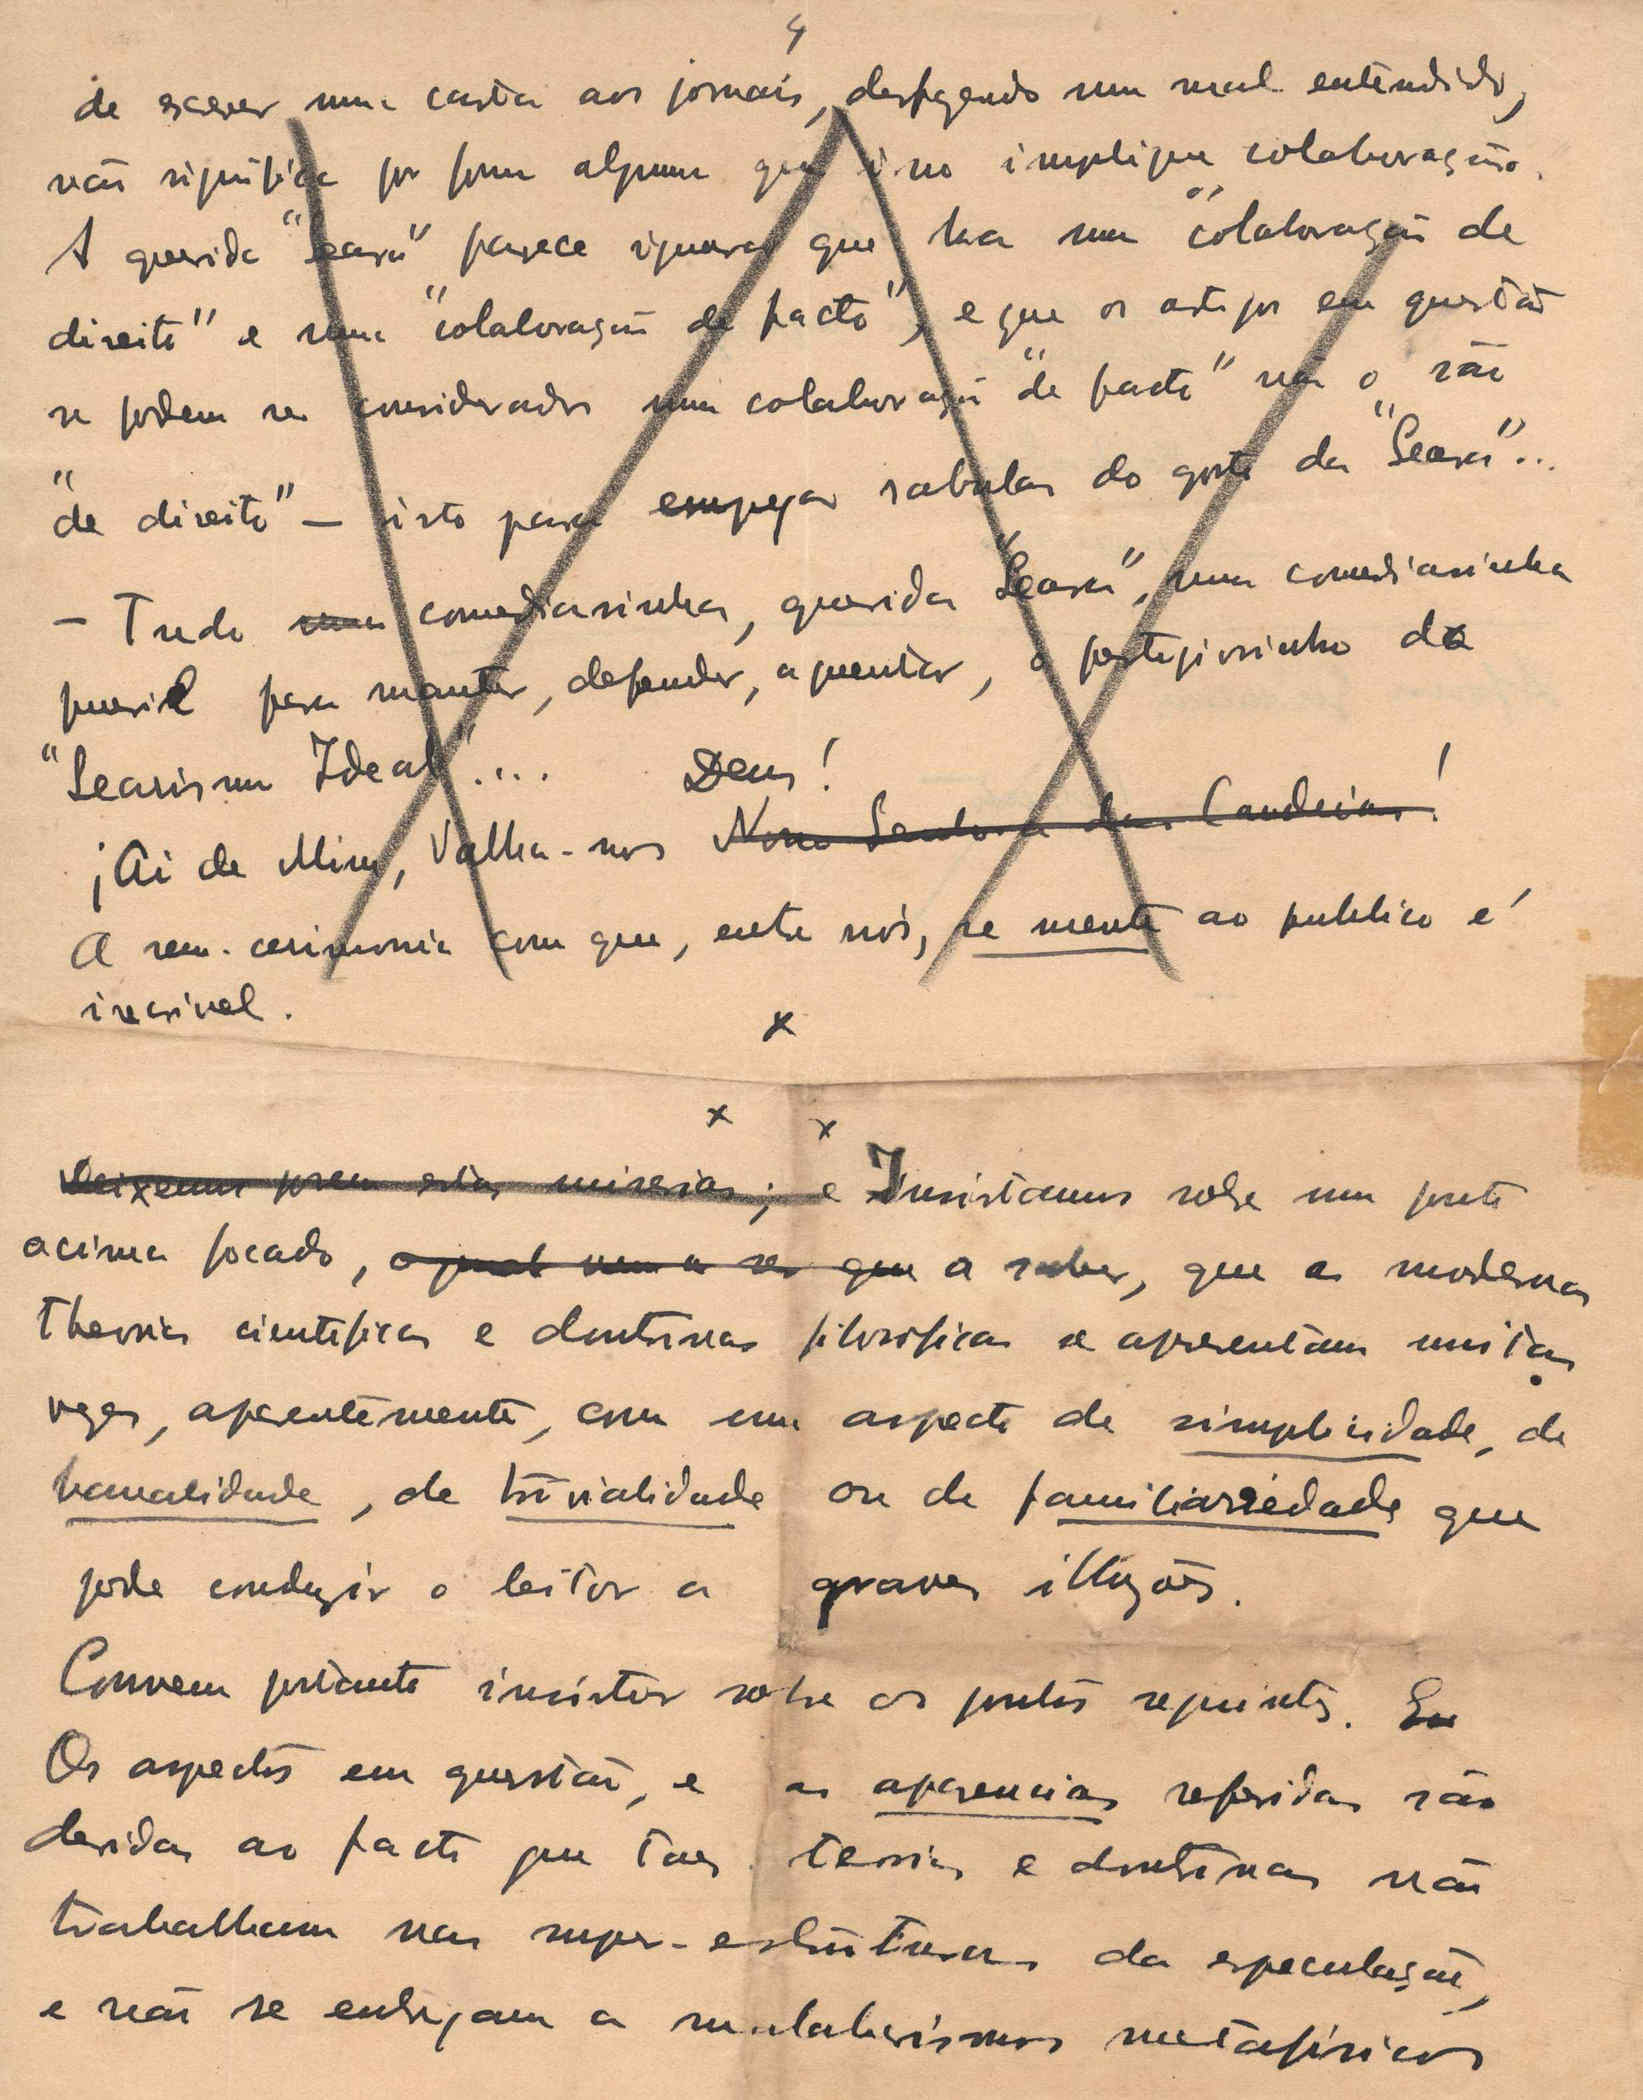 4
de escrever uma carta aos jornais, desfazendo um mal entendido,
não significa por forma alguma que isso implique colaboração.
A querida "Seara" parece ignorar que ha uma "colaboração de
direito" e uma "colaboração de facto", e que os artigos em questão
se podem ser considerados uma colaboração "de facto" não o são
"de direito" – isto para empregar rabulas do gosto da "Seara"...
– Tudo uma comediasinha, querida "Seara", uma comediasinha
pueril para manter, defender, aguentar, o prestigiosinho da
"Searismo Ideal"....
Deus!
¡Ai de Mim, Valha-nos Nossa Senhora das Candeias!
A sem-cerimonia com que, entre nós, se mente ao publico é
incrivel.
x
x x
Deixemos porem estas miserias; e Insistamos sobre um ponto
acima focado, o qual vem a ser que a saber, que as modernas
theorias cientificas e doutrinas filosoficas se apresentam muitas
vezes, aparentemente, com um aspecto de simplicidade, de
banalidade, de trivialidade ou de familiariedade que
pode conduzir o leitor a graves illuzões.
Convem portanto insistir sobre os pontos seguintes. Eu
Os aspectos em questão, e as aparencias referidas são
devidas ao facto que taes teorias e doutrinas não
trabalham nas super-estruturas da especulação,
e não se entregam a malabarismos metafisicos